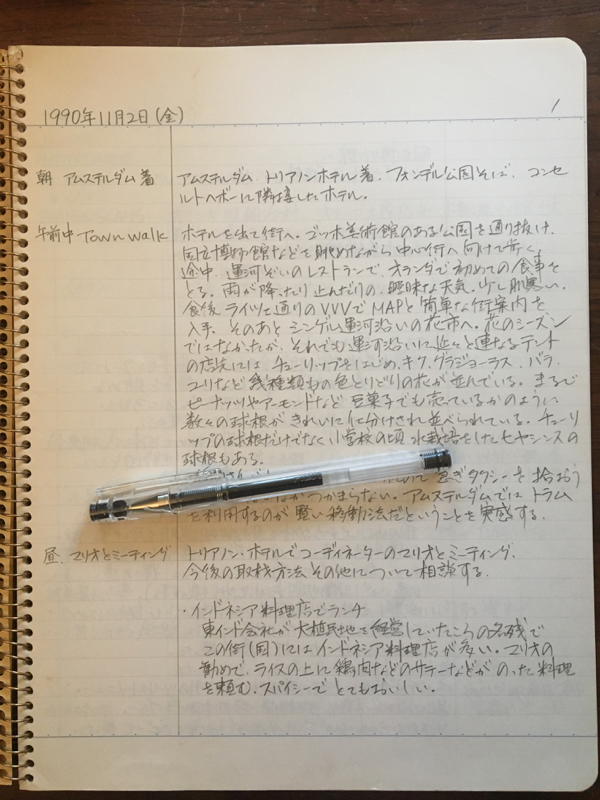 1990年11月2日(金)
1
朝 アムステルダム着
アムステルダム トリアノンホテル着. フォンデル公園そば. コンセ
ルトヘボーに隣接したホテル.
午前中-Town walk
ホテルを出て街へ. ゴッホ美術館のある公園を通り抜け.
国立博物館などを眺めながら中心街へ向けて歩く.
途中、運河ぞいのレストランで、オランダで初めての食事を
とる. 雨が降ったり止んだりの、曖昧な天気. 少し肌寒い.
食後 ライツェ通りのVVVでMAPと簡単な街案内を
入手. そのあと シンゲル運河沿いの花市へ. 花のシーズン
ではなかったが、それでも運河沿いに延々と連なるテント
の店先には、チューリップをはじめ、キク、グラジョーラス、バラ
ユリなど幾種類もの色とりどりの花が並んでいる. まるで
ピーナッツやアーモンドなど 豆菓子でも売ているかのように
数々の球根が きれいに仕分けされ並べられている. チューリ
ップの球根だけでなく 小学校の頃 水栽培をしたヒヤシンスの
球根もある.
急ぎタクシーを拾おう
がつかまらない. アムステルダムでは トラム
を利用するのが 賢い移動法だということを 実感する.
昼. マリオとミーティング
トリアノン・ホテルでコーディネーターのマリオとミーティング.
今後の取材方法 その他について 相談する.
・インドネシア料理店でランチ
東インド会社が 大植民地を経営していたころの名残で
この街(国)にはインドネシア料理店が多い. マリオの
勧めで、ライスの上に鶏肉などのサテーなどが のった料理
を頼む. スパイシーで とてもおいしい.